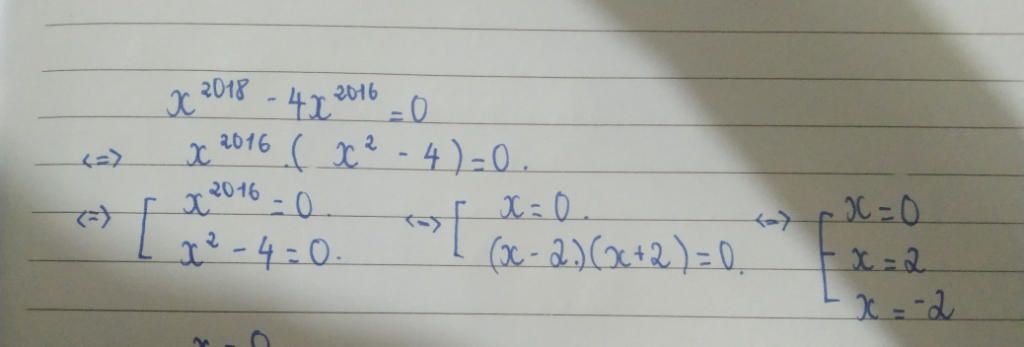 x^2018 - 4x^2016 = 0
<=> x^2016 . ( x^2 - 4 ) = 0 .
<=> [ x^2016 = 0 . <=> [ x = 0 . <=> [ x = 0
x^2 - 4 = 0 . (x - 2.)(x + 2) = 0 . x = 2
x = -2